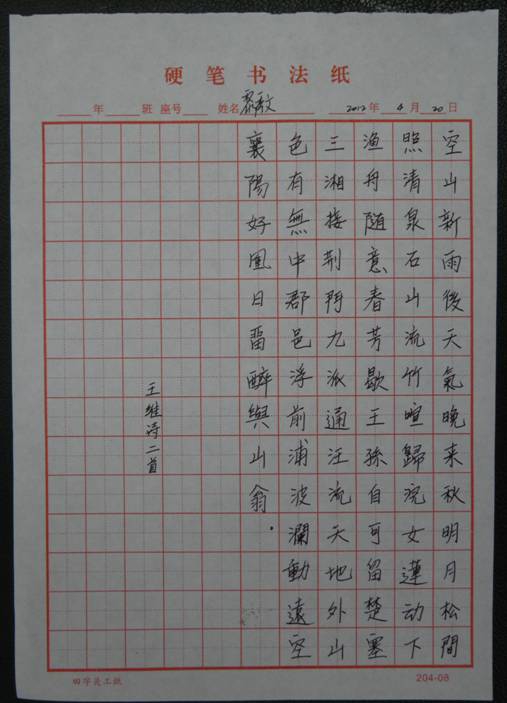 硬笔书法纸
年 班 座号 姓名 2012年 4月 20日
空山新雨後天氣晚来秋明月松間
照清泉石山流竹喧歸浣女蓮动下
渔舟随意春芳歇王孫自可留楚塞
三湘接荆門九派通汪流天地外山
色有無中郡邑浮前浦波瀾動遠空
襄陽好風日畱醉與山翁.
王维诗二首
204-08